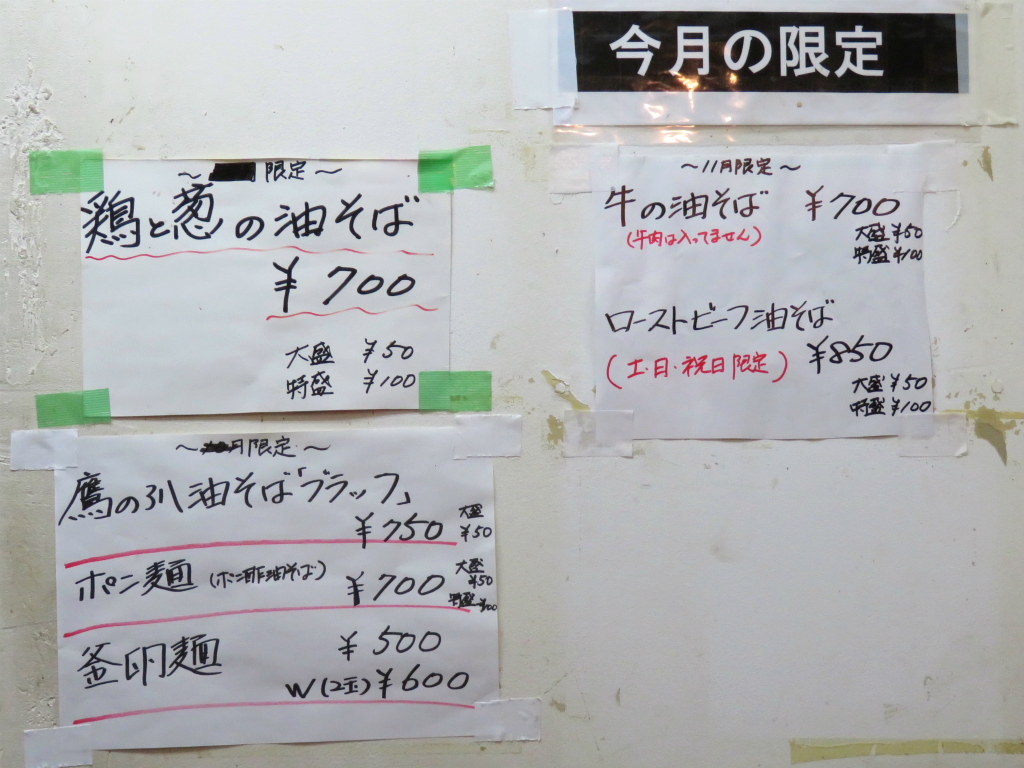 今月の限定
～ 限定～
鶏と葱の油そば
¥700
大盛 ¥50
特盛 ¥100
～11月限定～
牛の油そば ¥700
(牛肉は入ってません)
大盛 ¥50
特盛 ¥100
ローストビーフ油そば
(土・日・祝日限定) ¥850
大盛 ¥50
特盛 ¥100
～ 月限定～
鷹の爪油そば「ブラック」
¥750 大盛 ¥50
ポン麺 (ポン酢油そば) ¥700 大盛 ¥50
特盛 ¥100
釜卵麺 ¥500
W(2玉) ¥600